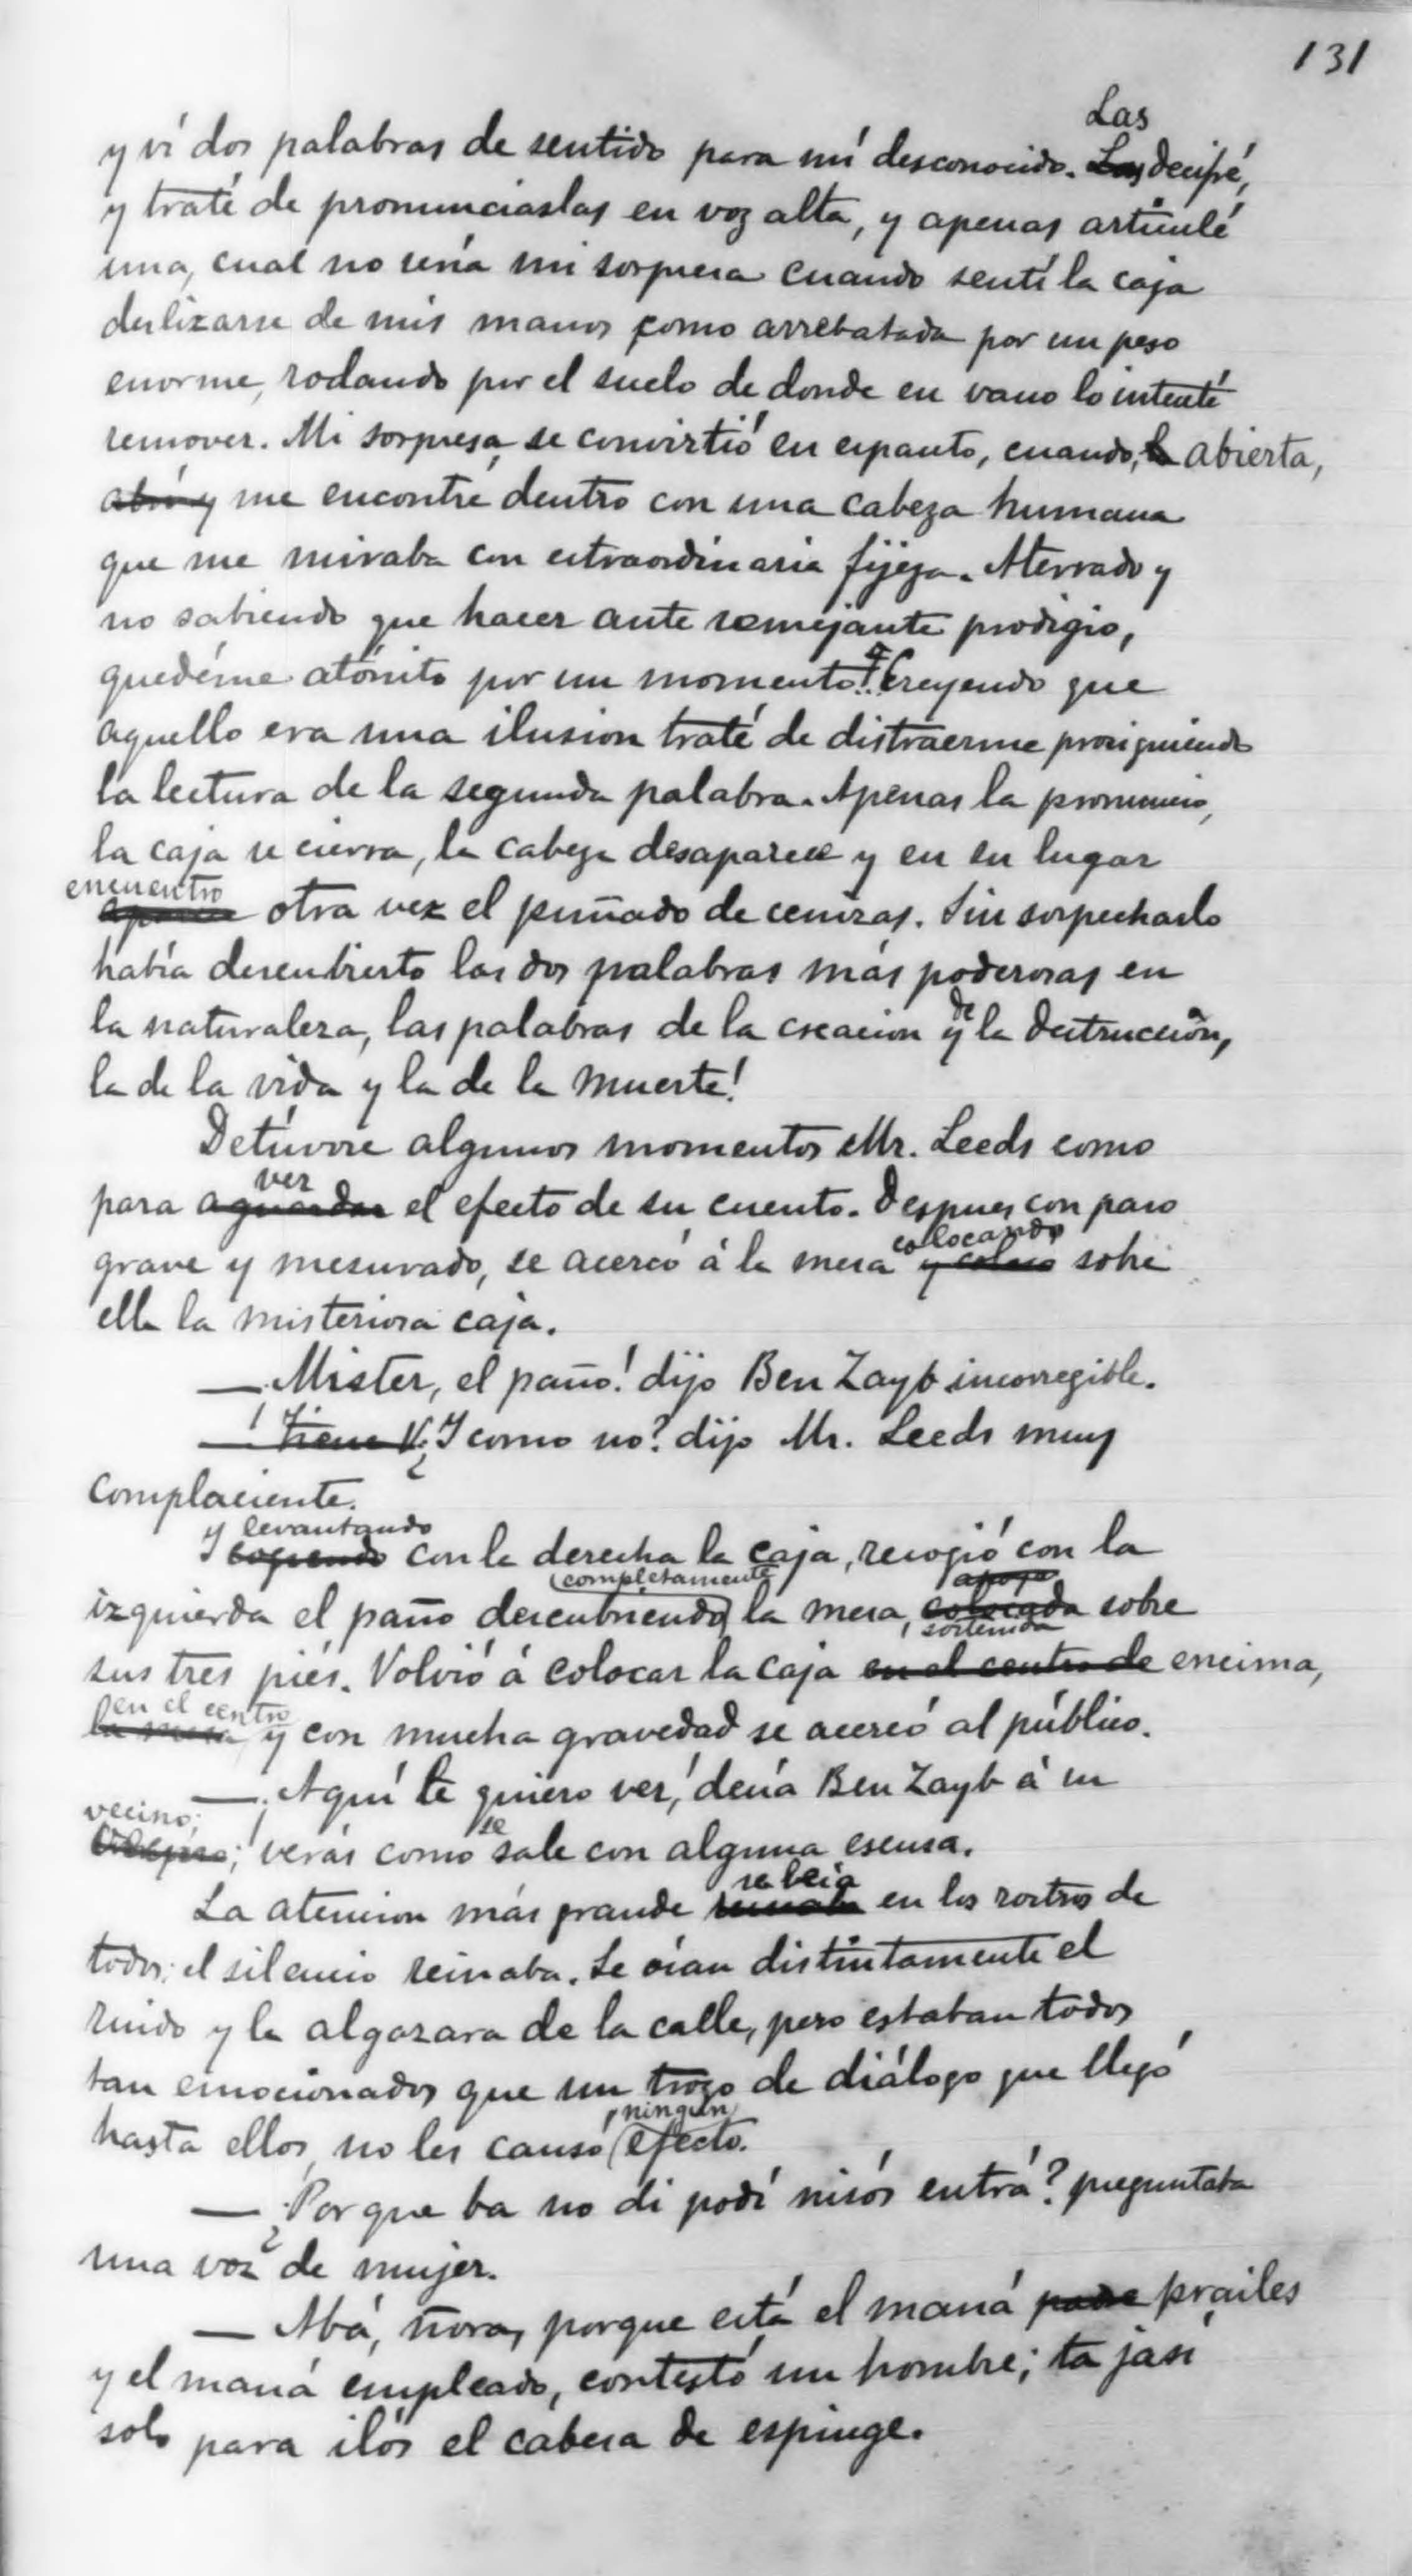 131
Las
y ví dos palabras de sentido para mí desconocido. Las decifré,
y traté de pronunciarlas en voz alta, y apenas artículé
una, cual no sería mi sorpresa cuando sentí la caja
deslizarse de mis manos como arrebatada por un peso
enorme, rodando por el suelo de donde en vano lo intenté
remover. Mi sorpresa se convirtió en espanto, cuando, la abierta,
abrí y me encontré dentro con una cabeza humana
que me miraba con estraordinaria fijeza. Aterrado y
no sabiendo que hacer ante semejante prodigio,
quedéme atónito por un momento... Creyendo que
aquello era una ilusion traté de distraerme prosiguiendo
la lectura de la segunda palabra. Apenas la pronuncio,
la caja se cierra, la cabeza desaparece y en su lugar
encuentro
aparece otra vez el puñado de cenizas. Sin sospecharlo
había descubierto las dos palabras más poderosas en
de
la naturaleza, las palabras de la creacion y la destrucción,
la de la vida y la de la muerte!
Detúvose algunos momentos Mr. Leeds como
ver
para aguardar el efecto de su cuento. Despues con paso
colocando
grave y mesurado, se acercó á la mesa y coloco sobre
ella la misteriosa caja.
— ¡Mister, el paño! dijo Ben Zayb incorregible.
— ¡Tiene V. ¿Y como no? dijo Mr. Leeds muy
complaciente.
y levantando
Y cogiendo con la derecha la caja, recogió con la
completamente apoya
izquierda el paño descubriendo la mesa, colocada sobre
sostenida
sus tres piés. Volvió á colocar la caja en el centro de encima,
en el centro
la mesa y con mucha gravedad se acercó al público.
— ¡Aquí te quiero ver! decía Ben Zayb á su
vecino; se
; verás como sale con alguna escusa.
se leía
La atencion más grande reinaba en los rostros de
todos; el silencio reinaba. Se oían distintamente el
ruido y la algazara de la calle, pero estaban todos
tan emocionados que un trozo de diálogo que llegó
ningun
hasta ellos, no les causó efecto.
— ¿Porque ba no di podí nisós entrá? preguntaba
una voz de mujer.
— Abá, ñora, porque está el maná padre prailes
y el maná empleado, contestó un hombre; ta jasí
solo para ilós el cabesa de espinge.